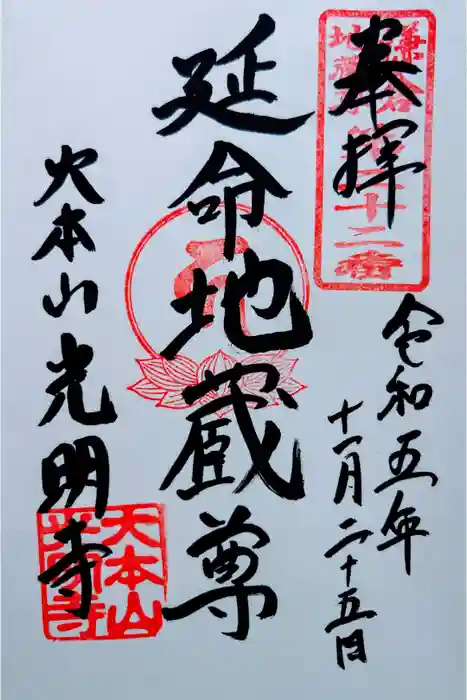 奉拝
鎌倉
地蔵尊第二十二番
令和五年
十一月二十五日
延命地蔵尊
天本山光明寺
天本山
光明寺